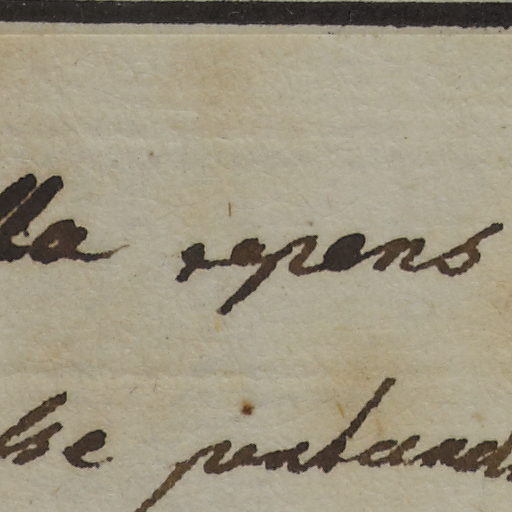 lla repens
lse pentand